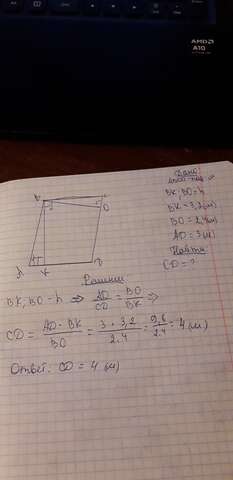 AMD
A10
Дано:
BK, BO = h
BK = 3,2 (м)
BO = 2,4 (м)
AD = 3 (м)
Найти:
CD = ?
A
K
D
O
Решение
BK, BO - h ⟹ AD/CD = BO/BK ⟹
CD = AD · BK / BO = 3 · 3,2 / 2.4 = 9,6 / 2.4 = 4 (м)
Ответ: CD = 4 (м)